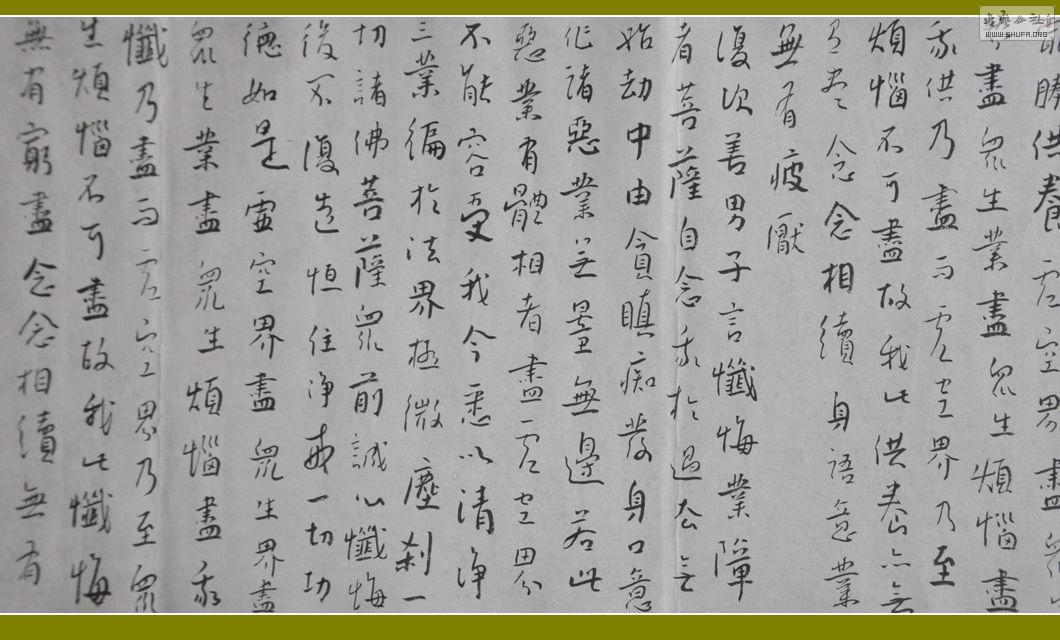 能勝供養虛空界盡眾生
界盡眾生業盡眾生煩惱盡
我供乃盡而虛空界乃至
煩惱不可盡故我此供養亦無
有盡念念相續身語意業
無有疲厭
復次善男子言懺悔業障
者菩薩自念我於過去無
始劫中由貪瞋癡發身口意
作諸惡業無量無邊若此
惡業有體相者盡虛空界
不能容受我今悉以清淨
三業徧於法界極微塵剎一
切諸佛菩薩眾前誠心懺悔
後不復造恒住淨戒一切功
德如是虛空界盡眾生界盡
眾生業盡眾生煩惱盡我
懺乃盡而虛空界乃至眾
生煩惱不可盡故我此懺悔
無有窮盡念念相續無有
書法公社
WWW.SHUFA.ORG